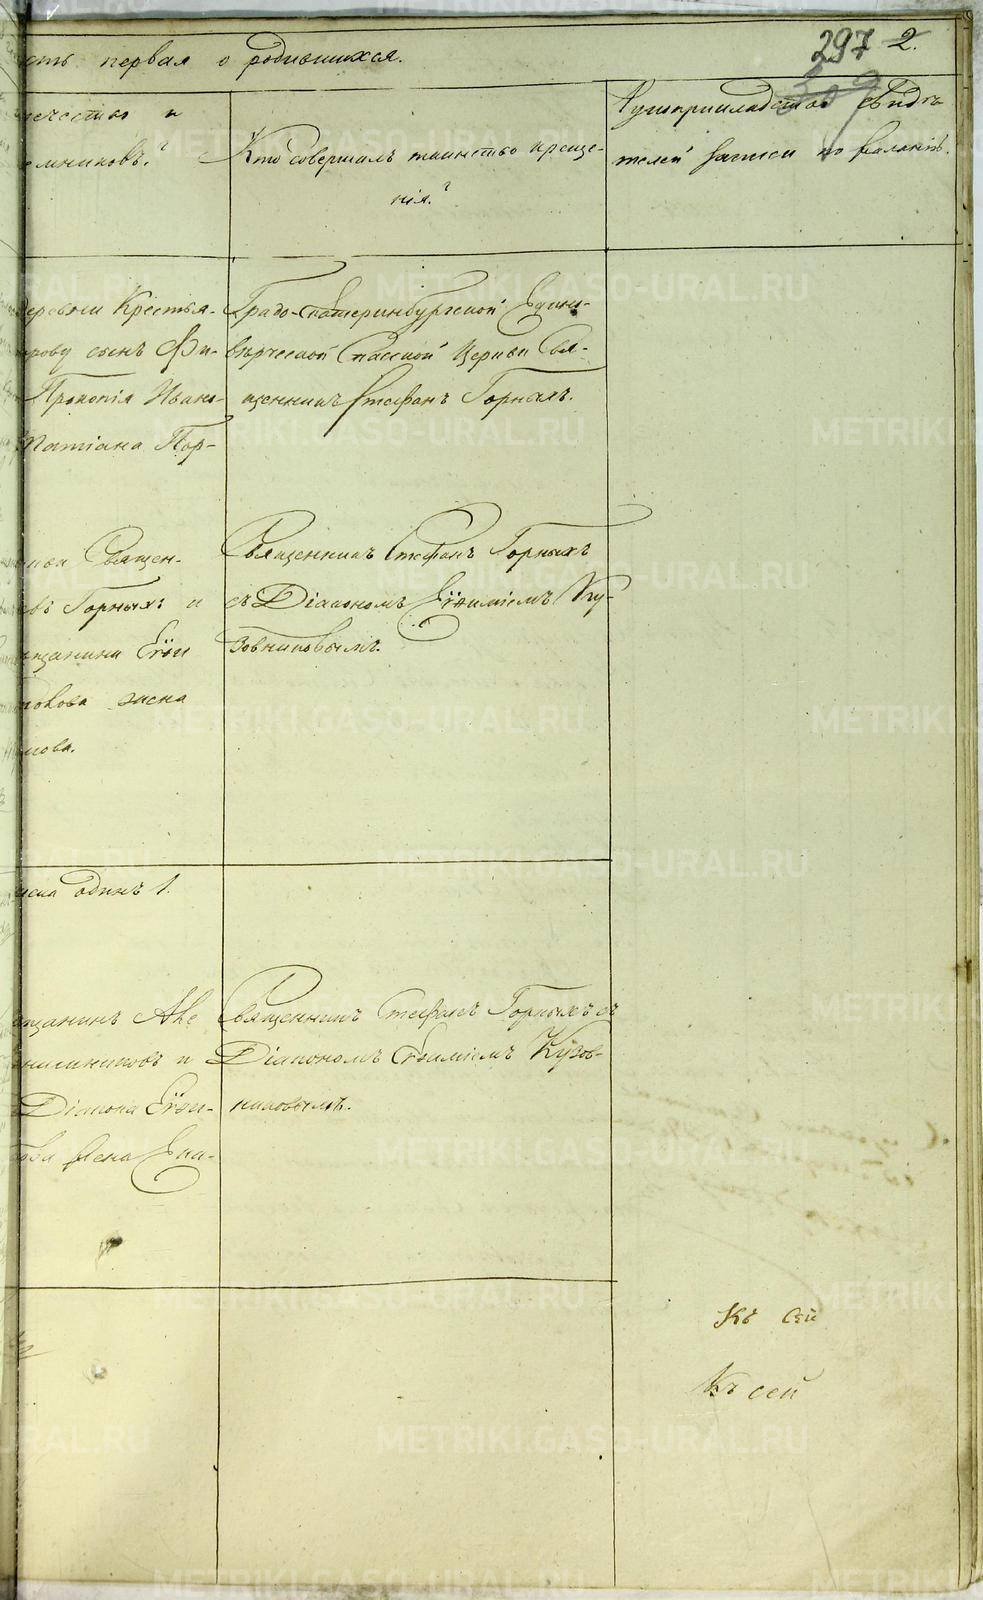 297 2.
309
сть первая о родившихся.
ечество и
емниковъ?
Кто совершалъ таинство креще-
нія?
Рукоприкладство свидѣ-
телей записи по желанію.
деревни Крестья-
сынъ Фи-
Прокопія Ивано-
Татіана Пор-
Градо-Екатеринбургской Едино-
вѣрческой Спасской Церкви Свя-
щенникъ Стефанъ Горныхъ.
Священ-
Горныхъ и
щанина Еѵѳи
жена
мова.
Священникъ Стефанъ Горныхъ
съ Діакономъ Еѵѳиміемъ Ку-
зовниковымъ.
одинъ 1.
щанинъ Але
никовъ и
Діакона Еѵѳи-
Священникъ Стефанъ Горныхъ съ
Діакономъ Еѵѳиміемъ Кузов-
никовымъ.
Къ сей
Къ сей
METRIKI.GASO-URAL.RU